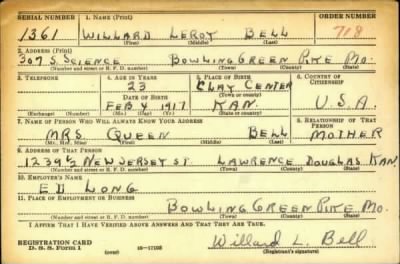 SERIAL NUMBER 1. NAME (Print) ORDER NUMBER
1361 WILLARD LEROY BELL 718
(First) (Middle) (Last)
2. ADDRESS (Print)
307 S. SCIENCE BOWLING GREEN PIKE MO.
(Number and street or R. F. D. number) (Town) (County) (State)
3. TELEPHONE 4. AGE IN YEARS 5. PLACE OF BIRTH 6. COUNTRY OF CITIZENSHIP
23 CLAY CENTER
DATE OF BIRTH (Town or county)
FEB 4 1917 KAN. U.S.A.
(Exchange) (Number) (Mo.) (Day) (Yr.) (State or country)
7. NAME OF PERSON WHO WILL ALWAYS KNOW YOUR ADDRESS 8. RELATIONSHIP OF THAT PERSON
MRS. QUEEN BELL MOTHER
(Mr., Mrs., Miss) (First) (Middle) (Last)
9. ADDRESS OF THAT PERSON
1239½ NEW JERSEY ST. LAWRENCE DOUGLAS KAN.
(Number and street or R. F. D. number) (Town) (County) (State)
10. EMPLOYER'S NAME
ED LONG
11. PLACE OF EMPLOYMENT OR BUSINESS
BOWLING GREEN PIKE MO.
(Number and street or R. F. D. number) (Town) (County) (State)
I AFFIRM THAT I HAVE VERIFIED ABOVE ANSWERS AND THAT THEY ARE TRUE.
REGISTRATION CARD Willard L. Bell
D. S. S. Form 1 (over) 16—17105 (Registrant's signature)